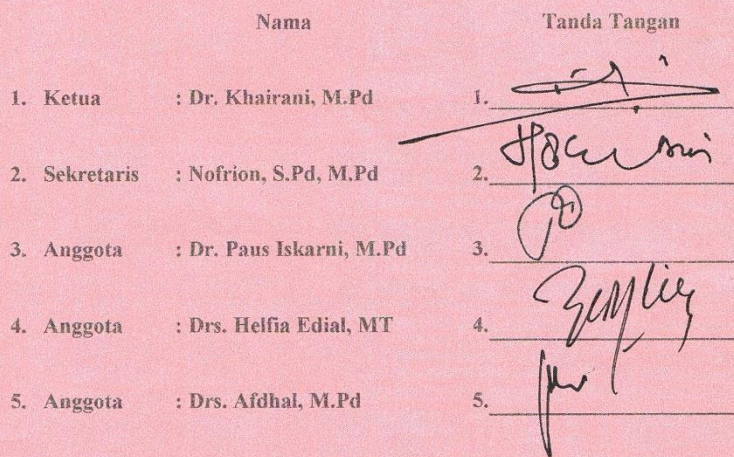 Nama Tanda Tangan
1. Ketua : Dr. Khairani, M.Pd 1.
2. Sekretaris : Nofrion, S.Pd, M.Pd 2.
3. Anggota : Dr. Paus Iskarni, M.Pd 3.
4. Anggota : Drs. Helfia Edial, MT 4.
5. Anggota : Drs. Afdhal, M.Pd 5.